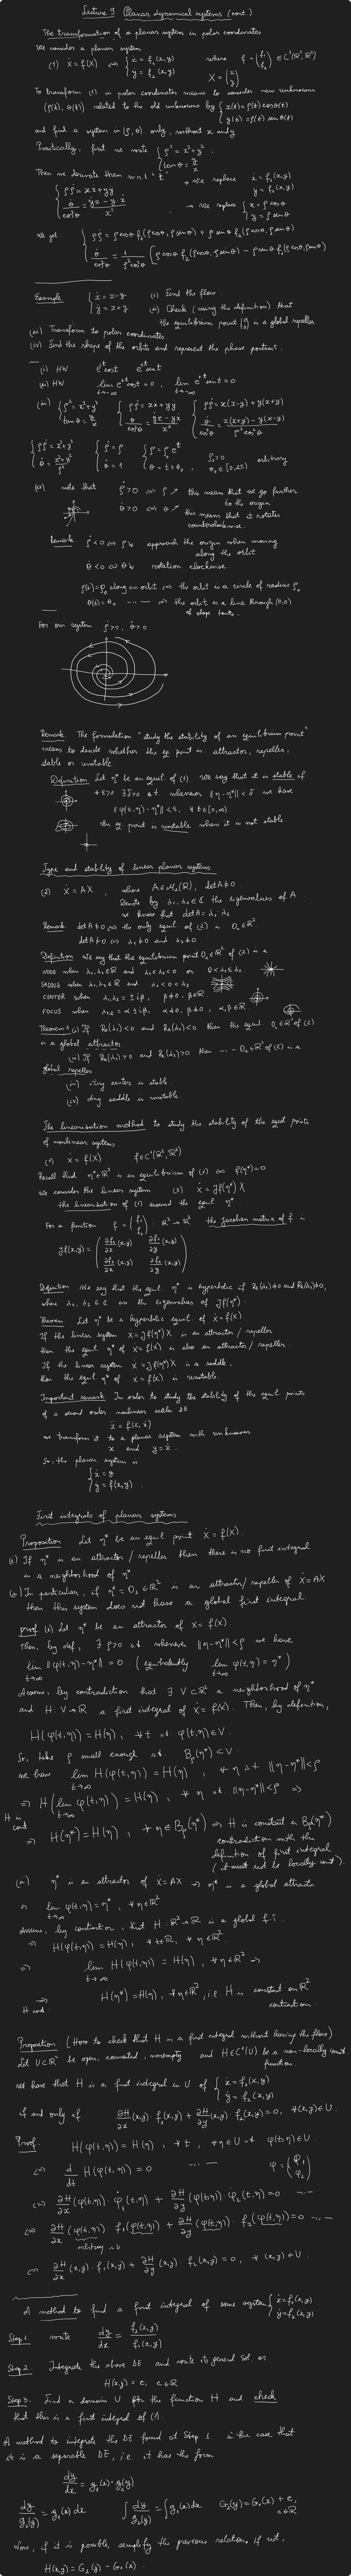 Lecture 9 Planar dynamical systems (cont.)
The transformation of a planar system in polar coordinates
We consider a planar system
(1) Ẋ = f(X) ⇔ { ẋ = f₁(x,y) ẏ = f₂(x,y) where f = (f₁ f₂) ∈ C¹(ℝ², ℝ²)
X = (x y)
To transform (1) in polar coordinates means to consider new unknowns
(ρ(t), θ(t)) related to the old unknowns by { x(t) = ρ(t) cos θ(t) y(t) = ρ(t) sin θ(t)
and find a system in (ρ, θ) only, without x and y
Practically, first we write { ρ² = x² + y² tan θ = y/x
Then we derivate them w.r.t. t → we replace ẋ = f₁(x,y) ẏ = f₂(x,y)
{ ρρ̇ = xẋ + yẏ θ̇/cos²θ = (ẏx − yẋ)/x² → we replace { x = ρ cos θ y = ρ sin θ
We get { ρρ̇ = ρ cos θ f₁(ρ cos θ, ρ sin θ) + ρ sin θ f₂(ρ cos θ, ρ sin θ)
θ̇/cos²θ = 1/(ρ² cos²θ) [ρ cos θ f₂(ρ cos θ, ρ sin θ) − ρ sin θ f₁(ρ cos θ, ρ sin θ)]
Example { ẋ = x − y ẏ = x + y (i) Find the flow
(ii) Check (using the definition) that
the equilibrium point (0 0) is a global repeller.
(iii) Transform to polar coordinates
(iv) Find the shape of the orbits and represent the phase portrait.
(i) HW eᵗ cos t eᵗ sin t
(ii) HW lim t→−∞ eᵗ cos t = 0, lim t→−∞ eᵗ sin t = 0
(iii) { ρ² = x² + y² tan θ = y/x { ρρ̇ = xẋ + yẏ θ̇/cos²θ = (ẏx − yẋ)/x² { ρρ̇ = x(x−y) + y(x+y) θ̇/cos²θ = (x(x+y) − y(x−y))/(ρ² cos²θ)
{ ρρ̇ = x² + y² θ̇ = (x² + y²)/ρ² { ρ̇ = ρ θ̇ = 1 { ρ = ρ₀ eᵗ θ = t + θ₀, ρ₀ > 0 θ₀ ∈ [0, 2π) arbitrary
(iv) note that ρ̇ > 0 ⇔ ρ ↗ this means that we go further
to the origin
θ̇ > 0 ⇔ θ ↗ this means that it rotates
counterclockwise.
Remark ρ̇ < 0 ⇔ ρ ↘ approach the origin when moving
along the orbit
θ̇ < 0 ⇔ θ ↘ rotation clockwise.
ρ(t) = ρ₀ along an orbit ⇔ the orbit is a circle of radius ρ₀
θ(t) = θ₀ -,,- ⇔ the orbit is a line through (0,0)
of slope tan θ₀.
For our system ρ̇ > 0, θ̇ > 0
Remark The formulation "study the stability of an equilibrium point"
means to decide whether the eq. point is: attractor, repeller,
stable or unstable.
Definition Let η* be an equil. of (1). We say that it is stable if
∀ ε > 0 ∃ δ > 0 s.t. whenever ‖η − η*‖ < δ we have
‖φ(t,η) − η*‖ < ε, ∀ t ∈ [0, ∞).
An eq. point is unstable when it is not stable
Type and stability of linear planar systems
(2) Ẋ = AX, where A ∈ M₂(ℝ), det A ≠ 0
Denote by λ₁, λ₂ ∈ ℂ the eigenvalues of A
we know that det A = λ₁·λ₂
Remark det A ≠ 0 ⇔ the only equil. of (2) is 0₂ ∈ ℝ².
det A ≠ 0 ⇔ λ₁ ≠ 0 and λ₂ ≠ 0.
Definition We say that the equilibrium point 0₂ ∈ ℝ² of (2) is a
NODE when λ₁, λ₂ ∈ ℝ and λ₁ ≤ λ₂ < 0 or 0 < λ₁ ≤ λ₂
SADDLE when λ₁, λ₂ ∈ ℝ and λ₁ < 0 < λ₂
CENTER when λ₁,₂ = ± iβ, β ≠ 0, β ∈ ℝ
FOCUS when λ₁,₂ = α ± iβ, α ≠ 0, β ≠ 0, α, β ∈ ℝ.
Theorem 1 (i) If Re(λ₁) < 0 and Re(λ₂) < 0 then the equil. 0₂ ∈ ℝ² of (2)
is a global attractor
(ii) If Re(λ₁) > 0 and Re(λ₂) > 0 then -,,- 0₂ ∈ ℝ² of (2) is a
global repeller
(iii) Any center is stable.
(iv) Any saddle is unstable
The linearization method to study the stability of the equil points
of nonlinear systems.
(1) Ẋ = f(X) f ∈ C¹(ℝ², ℝ²)
Recall that η* ∈ ℝ² is an equilibrium of (1) ⇔ f(η*) = 0
We consider the linear system (3) Ẋ = Jf(η*) X
the linearization of (1) around the equil η*
For a function f = (f₁ f₂) : ℝ² → ℝ² the Jacobian matrix of f is
Jf(x,y) = ( ∂f₁/∂x (x,y) ∂f₁/∂y (x,y)
∂f₂/∂x (x,y) ∂f₂/∂y (x,y) )
Definition We say that the equil. η* is hyperbolic if Re(λ₁) ≠ 0 and Re(λ₂) ≠ 0,
where λ₁, λ₂ ∈ ℂ are the eigenvalues of Jf(η*).
Theorem Let η* be a hyperbolic equil. of Ẋ = f(X).
If the linear system Ẋ = Jf(η*) X is an attractor / repeller
then the equil. η* of Ẋ = f(X) is also an attractor / repeller.
If the linear system Ẋ = Jf(η*) X is a saddle,
then the equil. η* of Ẋ = f(X) is unstable.
Important remark In order to study the stability of the equil points
of a second order nonlinear scalar DE
ẍ = f(x, ẋ)
we transform it to a planar system with unknowns
x and y = ẋ.
So, the planar system is
{ ẋ = y
ẏ = f(x,y).
First integrals of planar systems
Proposition Let η* be an equil. point Ẋ = f(X).
(i) If η* is an attractor / repeller then there is no first integral
in a neighborhood of η*.
(ii) In particular, if η* = 0₂ ∈ ℝ² is an attractor/repeller of Ẋ = AX
then this system does not have a global first integral.
proof (i) Let η* be an attractor of Ẋ = f(X)
Then, by def, ∃ ρ > 0 s.t. whenever ‖η − η*‖ < ρ we have
lim t→∞ ‖φ(t,η) − η*‖ = 0. (equivalently lim t→∞ φ(t,η) = η*)
Assume, by contradiction that ∃ V ⊂ ℝ² a neighborhood of η*
and H: V → ℝ a first integral of Ẋ = f(X). Then, by definition,
H(φ(t,η)) = H(η), ∀ t s.t. φ(t,η) ∈ V.
So, take ρ small enough s.t. B_ρ(η*) ⊂ V.
we have lim t→∞ H(φ(t,η)) = H(η), ∀ η s.t. ‖η − η*‖ < ρ
⇒ H(lim t→∞ φ(t,η)) = H(η), ∀ η s.t. ‖η − η*‖ < ρ ⇒
H is cont ⇒ H(η*) = H(η), ∀ η ∈ B_ρ(η*) ⇒ H is constant in B_ρ(η*)
contradiction with the
definition of first integral
(it must not be locally const).
(ii) η* is an attractor of Ẋ = AX ⇒ η* is a global attractor
⇒ lim t→∞ φ(t,η) = η*, ∀ η ∈ ℝ²
Assume, by contradiction, that H: ℝ² → ℝ is a global f.i.
⇒ H(φ(t,η)) = H(η), ∀ t ∈ ℝ, ∀ η ∈ ℝ².
⇒ lim t→∞ H(φ(t,η)) = H(η), ∀ η ∈ ℝ² ⇒
⇒ H cont. H(η*) = H(η), ∀ η ∈ ℝ², i.e. H is constant on ℝ²
Proposition (How to check that H is a first integral without having the flow)
Let U ⊂ ℝ² be open, connected, nonempty and H ∈ C¹(U) be a non-locally const.
function.
We have that H is a first integral in U of { ẋ = f₁(x,y) ẏ = f₂(x,y)
if and only if ∂H/∂x (x,y) · f₁(x,y) + ∂H/∂y (x,y) · f₂(x,y) = 0, ∀ (x,y) ∈ U.
Proof. H(φ(t,η)) = H(η), ∀ t, ∀ η ∈ U s.t. φ(t,η) ∈ U.
⇔ d/dt H(φ(t,η)) = 0 -,,- φ = (φ₁ φ₂)
⇔ ∂H/∂x (φ(t,η)) · φ̇₁(t,η) + ∂H/∂y (φ(t,η)) · φ̇₂(t,η) = 0 -,,-
⇔ ∂H/∂x (φ(t,η)) · f₁(φ(t,η)) + ∂H/∂y (φ(t,η)) · f₂(φ(t,η)) = 0 -,,-
arbitrary in U
⇔ ∂H/∂x (x,y) · f₁(x,y) + ∂H/∂y (x,y) · f₂(x,y) = 0, ∀ (x,y) ∈ U.
A method to find a first integral of some systems { ẋ = f₁(x,y) ẏ = f₂(x,y)
Step 1. write dy/dx = f₂(x,y)/f₁(x,y)
Step 2. Integrate the above DE and write its general sol as
H(x,y) = c, c ∈ ℝ
Step 3. Find a domain U for the function H and check
that this is a first integral of (1).
A method to integrate the DE found at Step 1 in the case that
it is a separable DE, i.e. it has the form
dy/dx = g₁(x) · g₂(y)
dy/g₂(y) = g₁(x) dx ∫ dy/g₂(y) = ∫ g₁(x) dx G₂(y) = G₁(x) + c, c ∈ ℝ
Now, if it is possible, simplify the previous relation. If not,
H(x,y) = G₂(y) − G₁(x).